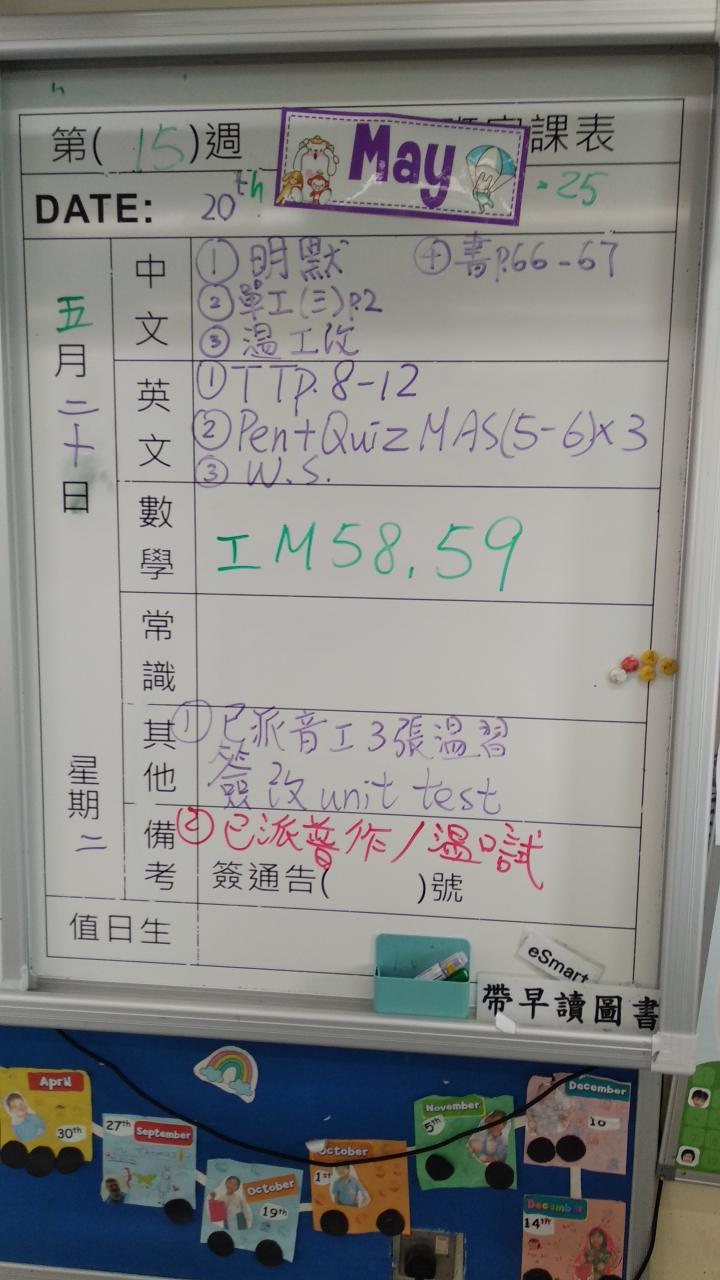 第( 15 )週 May 課表
DATE: 20th 25
五月二十日 星期二
中文
① 明默 ④ 書P.66-67
② 單工(三)P.2
③ 溫工改
英文
① TTP.8-12
② Pen+Quiz MAS(5-6)×3
③ W.S.
數學
工 M58.59
常識
其他
① 已派音工3張溫習
簽改 unit test
備考
② 已派普作/溫口試
簽通告( )號
值日生
eSmart
帶早讀圖書
April
30th
27th September
October
19th
October
1st
November
5th
December
10
December
14th